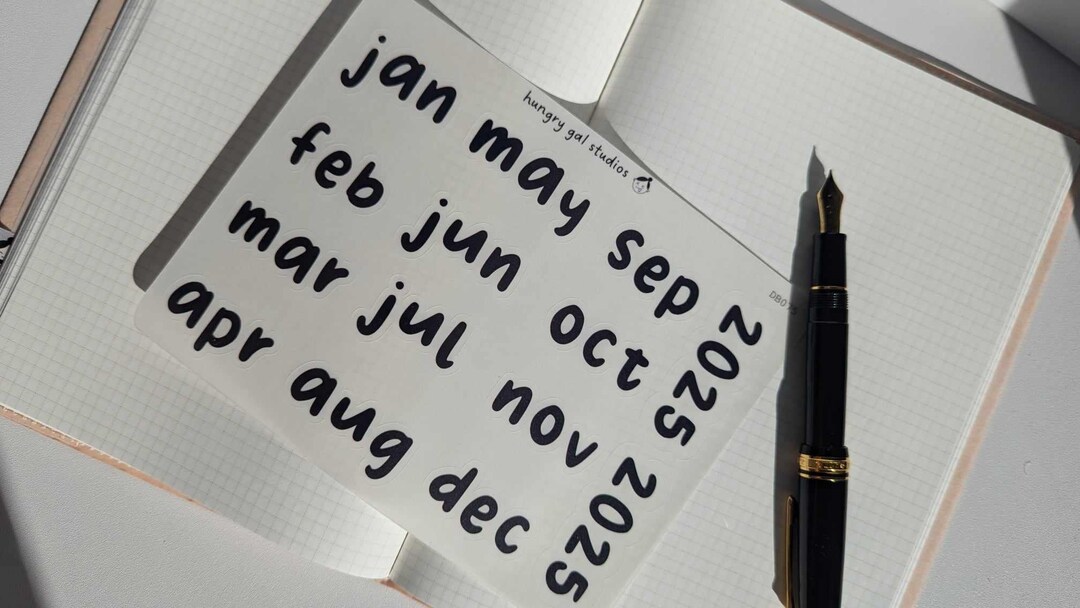 hungry gal studios
jan may sep
feb jun oct
mar jul nov
apr aug dec
2025
2025